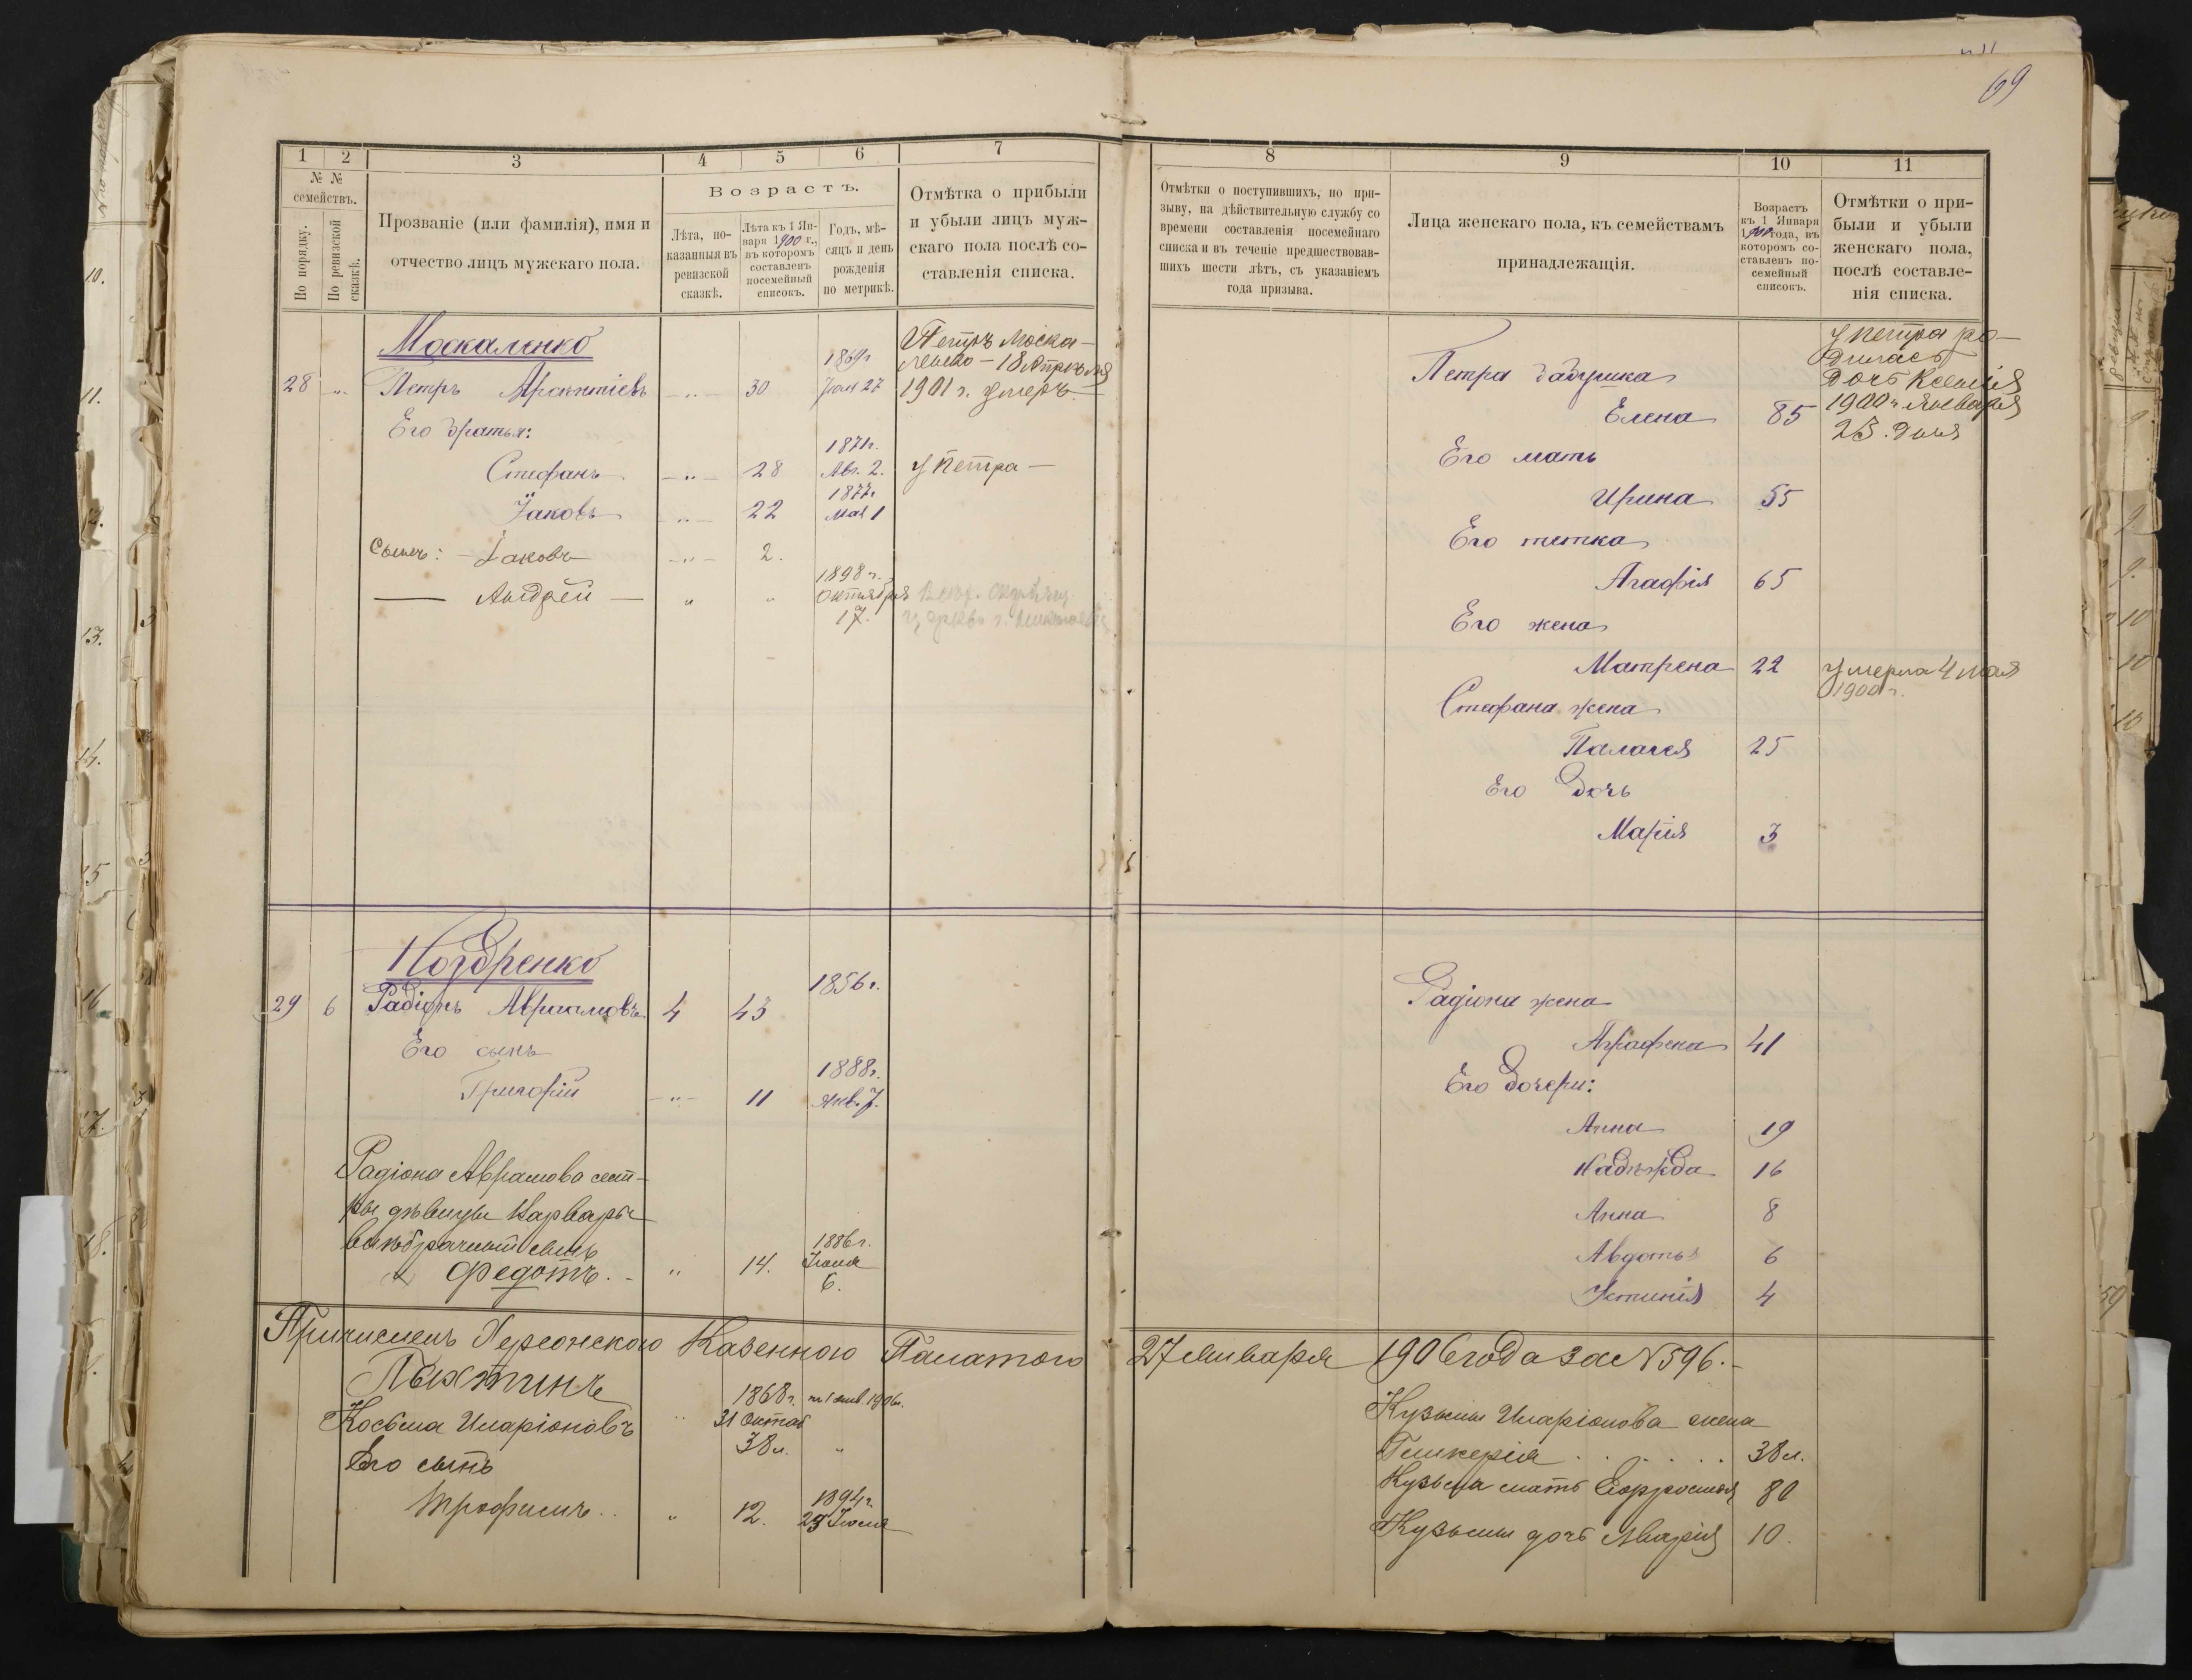 69
1 2 3 4 5 6 7
№ №
семействъ.
По порядку.
По ревизской сказкѣ.
Прозваніе (или фамилія), имя и
отчество лицъ мужскаго пола.
Возрастъ.
Лѣта, по-
казанныя въ
ревизской
сказкѣ.
Лѣта къ 1 Ян-
варя 1900 г.,
въ которомъ
составленъ
посемейный
списокъ.
Годъ, мѣ-
сяцъ и день
рожденія
по метрикѣ.
Отмѣтка о прибыли
и убыли лицъ муж-
скаго пола послѣ со-
ставленія списка.
Москаленко
28 „ Петръ Арсентіевъ — „ — 30 1869 г. Іюня 27
Петръ Моска-
ленко — 18 Апрѣля
1901 г. умеръ.
Его братья:
Стефанъ — „ — 28 1871 г. Авг. 2.
у Петра —
Іаковъ — „ — 22 1877 г. Мая 1
Сынъ: — Іаковъ — „ — 2.
— Андрей — „ „ 1898 г. Октября 17.
Ноздренко
29 6 Радіонъ Авраамовъ 4 43 1856 г.
Его сынъ
Григорій — „ — 11 1888 г. Янв. 7.
Радіона Аврамова сест-
ры дѣвицы Варвары
внѣбрачный сынъ
Федотъ. — „ 14. 1886 г. Іюня 6.
Причисленъ Херсонскою Казенною Палатою 27 Января 1906 года за № 596. —
Пыхтинъ
1868 г. на 1 янв. 1906 г.
Косьма Иларіоновъ „ 31 Октяб
38 л. „
Его сынъ
Трофимъ . . „ 12. 1894 г. 23 Іюля
8 9 10 11
Отмѣтки о поступившихъ, по при-
зыву, на дѣйствительную службу со
времени составленія посемейнаго
списка и въ теченіе предшествовав-
шихъ шести лѣтъ, съ указаніемъ
года призыва.
Лица женскаго пола, къ семействамъ
принадлежащія.
Возрастъ
къ 1 Января
1900 года, въ
которомъ со-
ставленъ по-
семейный
списокъ.
Отмѣтки о при-
были и убыли
женскаго пола,
послѣ составле-
нія списка.
Петра бабушка
Елена 85
у Петра ро-
дилась
Дочь Ксенія
1900 г. Января
23. дня
Его мать
Ирина 55
Его тетка
Агафія 65
Его жена
Матрена 22 умерла 4 мая
1900 г.
Стефана жена
Палагея 25
Его дочь
Марія 3
Радіона жена
Аграфена 41
Его дочери:
Анна 19
Надежда 16
Анна 8
Авдотья 6
Устинія 4
Кузьмы Иларіонова жена
Гликерія . . . . . 38 л.
Кузьмы мать Ефросинья 80
Кузьмы дочь Марія 10.